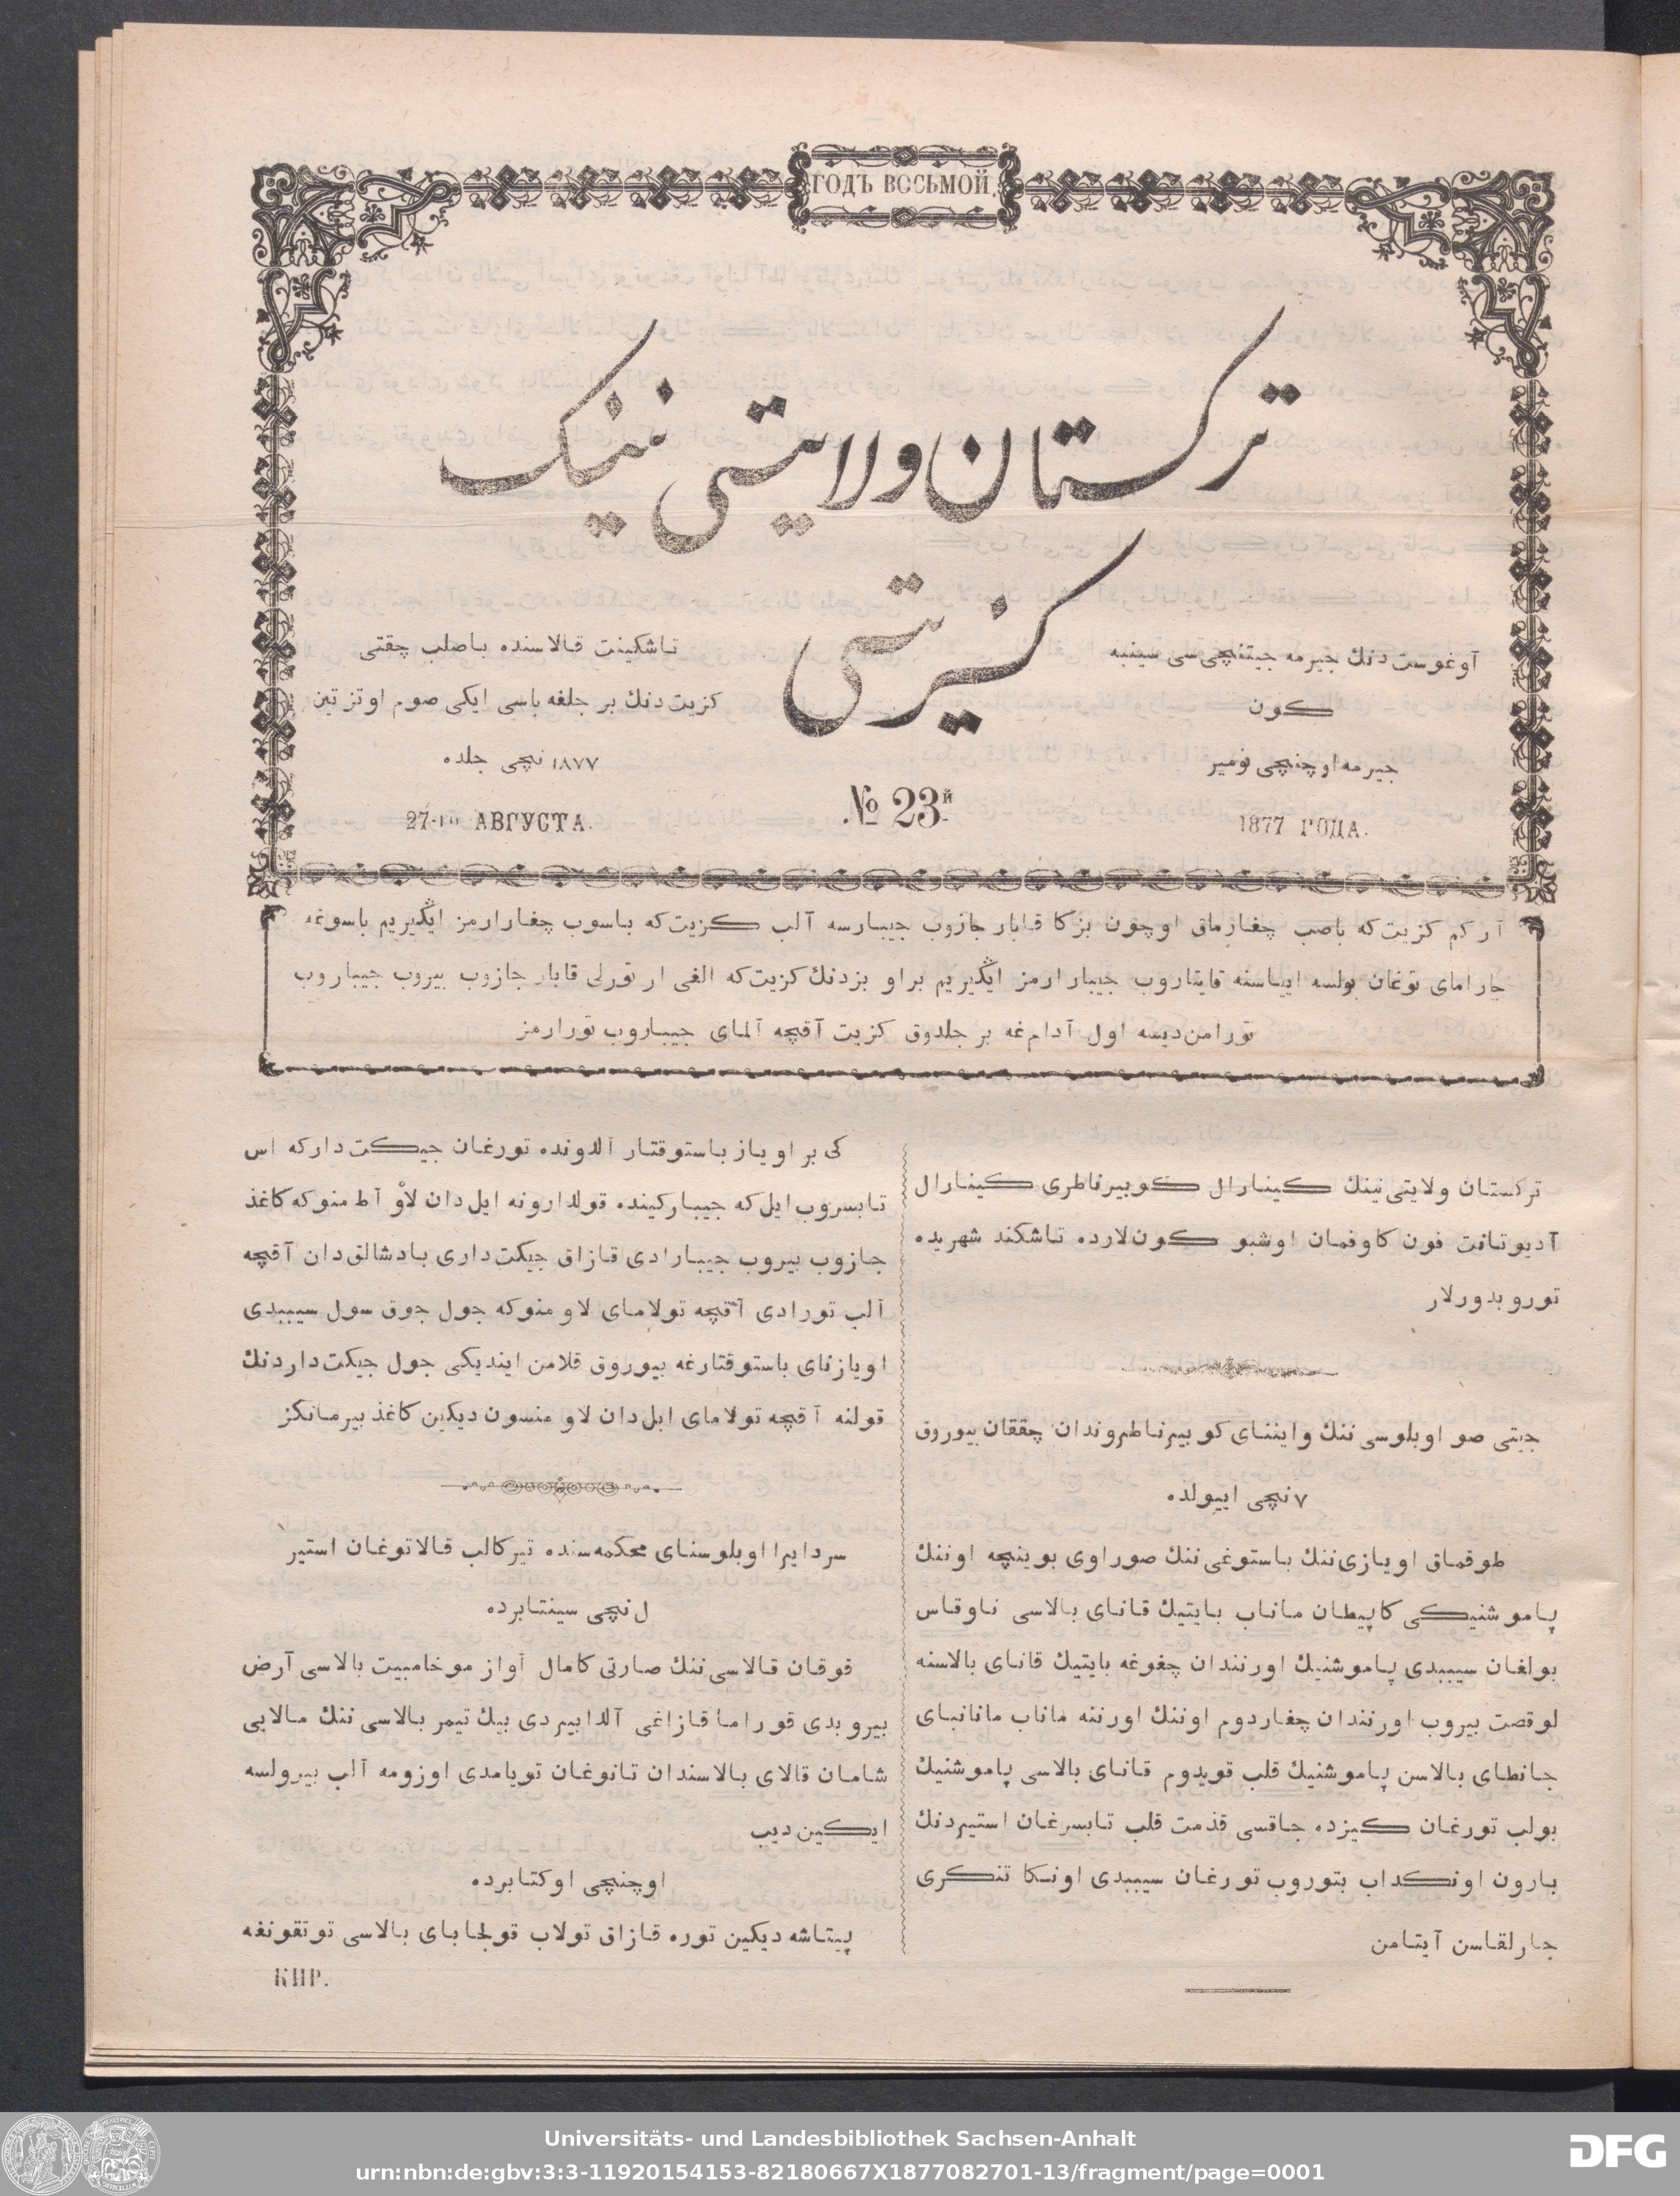 ГОДЪ ВОСЬМОЙ.
تركستان ولايتى نينك
كزيتى
آوغوست دنك جيرمه جيتنچى سى سينبه
كون
جيرمه اوچنچى نومير
1877 ГОДА.
تاشكينت قالاسنده باصلب چقتى
كزيت دنك بر جلغه باسى ايكى صوم اوتز تين
١٨٧٧ نچى جلده
27-го АВГУСТА.
№ 23й
آر كم كزيت كه باصب چغارماق اوچون بزكا قابار جازوب جيبارسه آلب كزيت كه باسوب چغارارمز ايڭيريم باسوغه
جارامای توغان بولسه ايياسنه قايتاروب جيبارارمز ايڭيريم براو بزدنك كزيت كه الغى ار تورلى قابار جازوب بيروب جيباروب
تورامن ديسه اول آدام غه بر جلدوق كزيت آقچه آلمای جيباروب تورارمز
تركستان ولايتى نينك كينارال كوبيرناطرى كينارال
آديوتانت فون كاوفمان اوشبو كون لارده تاشكند شهريده
توروبدورلار
جيتى صو اوبلوسى ننك واينناى كوبيرناطروندان چققان بيوروق
٧ نچى اييولده
طوقماق اويازى ننك باستوغى ننك صوراوى بوينچه اوننك
پاموشنيكى كاپيطان ماناب بايتيك قاناى بالاسى ناوقاس
بولغان سيببدى پاموشنيك اورنندان چغوغه بايتيك قاناى بالاسنه
لوقصت بيروب اورنندان چغاردوم اوننك اورننه ماناب مانانباى
جانطاى بالاسن پاموشنيك قلب قويدوم قاناى بالاسى پاموشنيك
بولب تورغان كيزده جاقسى قذمت قلب تابسرغان استيردنك
بارون اونكداب بتوروب تورغان سيببدى اونكا تنكرى
جارلقاسن آيتامن
كى بر اوياز باستوقتار آلدونده تورغان جيكت داركه اس
تابسروب ايل كه جيباركينده قولدارونه ايل دان لاو آط منوكه كاغذ
جازوب بيروب جيبارادى قازاق جيكت دارى بادشالق دان آقچه
آلب تورادى آقچه تولاماى لاو منوكه جول جوق سول سيببدى
اويازناى باستوقتارغه بيوروق قلامن اينديكى جول جيكت داردنك
قولنه آقچه تولاماى ايل دان لاو منسون ديكين كاغذ بيرمانكز
سردايرا اوبلوسناى محكمه سنده تيركالب قالاتوغان استير
ل نچى سينتابرده
قوقان قالاسى ننك صارتى كامال آواز موخامبيت بالاسى آرض
بيروبدى قوراما قازاغى آلدابيردى بيك تيمر بالاسى ننك مالايى
شامان قالاى بالاسندان تانوغان تويامدى اوزومه آلب بيرولسه
ايكين ديب
اوچنچى اوكتابرده
پيتاشه ديكين توره قازاق تولاب قولجاباى بالاسى توتقونغه
КИР.
Universitäts- und Landesbibliothek Sachsen-Anhalt
urn:nbn:de:gbv:3:3-11920154153-82180667X1877082701-13/fragment/page=0001
DFG